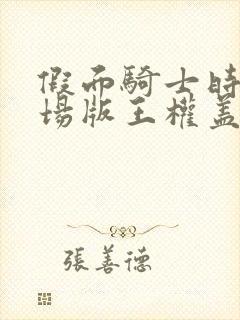 假面騎士時
場版王權蓋
張善德